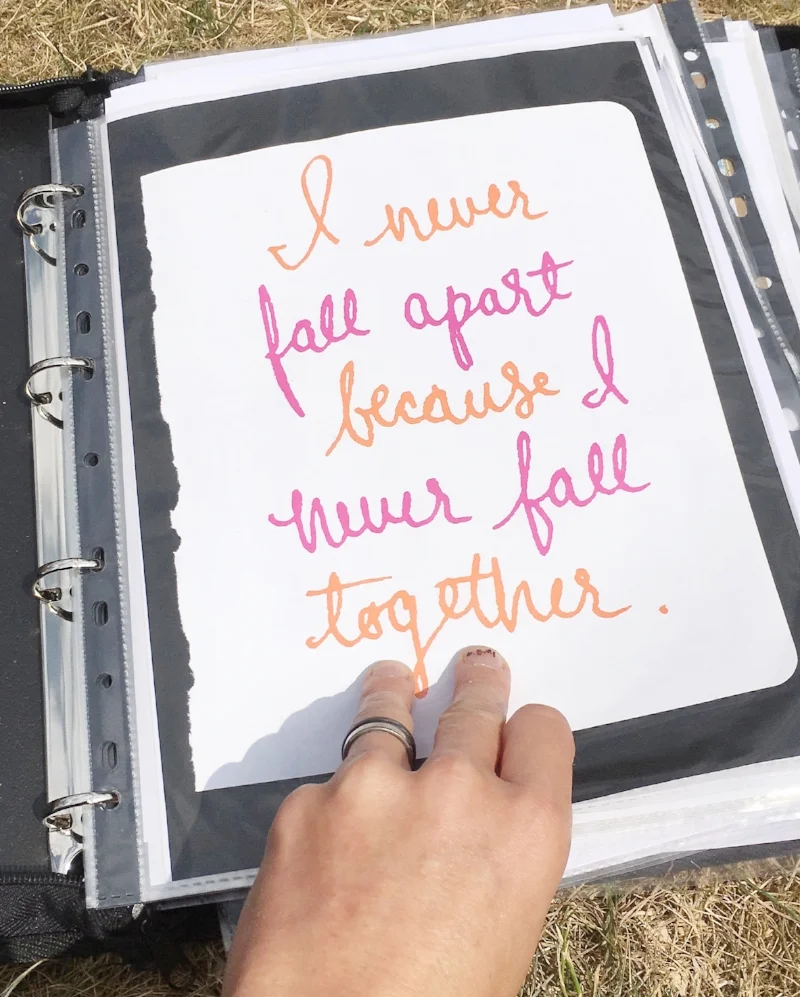 I never
fall apart
because I
never fall
together.